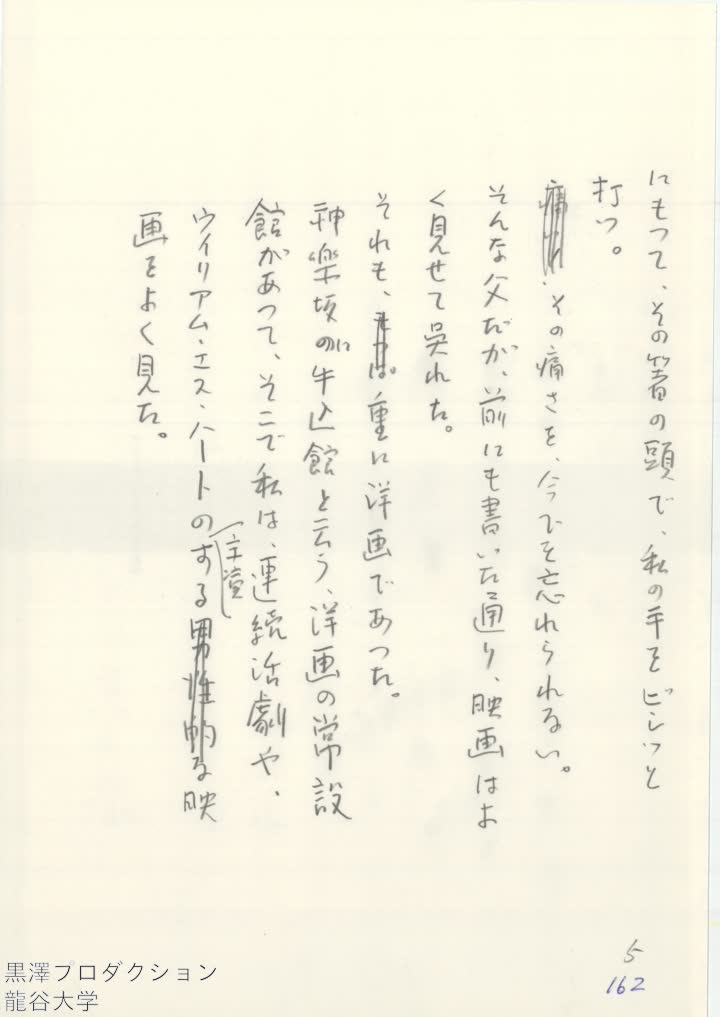 にもつて、その箸の頭で、私の手をピシッと
打つ。
その痛さを、今でも忘れられない。
そんな父だが、前にも書いた通り、映画はよ
く見せて呉れた。
それも、重に洋画であつた。
神楽坂に牛込館と云う、洋画の常設
館があつて、そこで私は、連続活劇や、
ウイリアム・エス・ハートの主演する映
画をよく見た。
5
162
黒澤プロダクション
龍谷大学